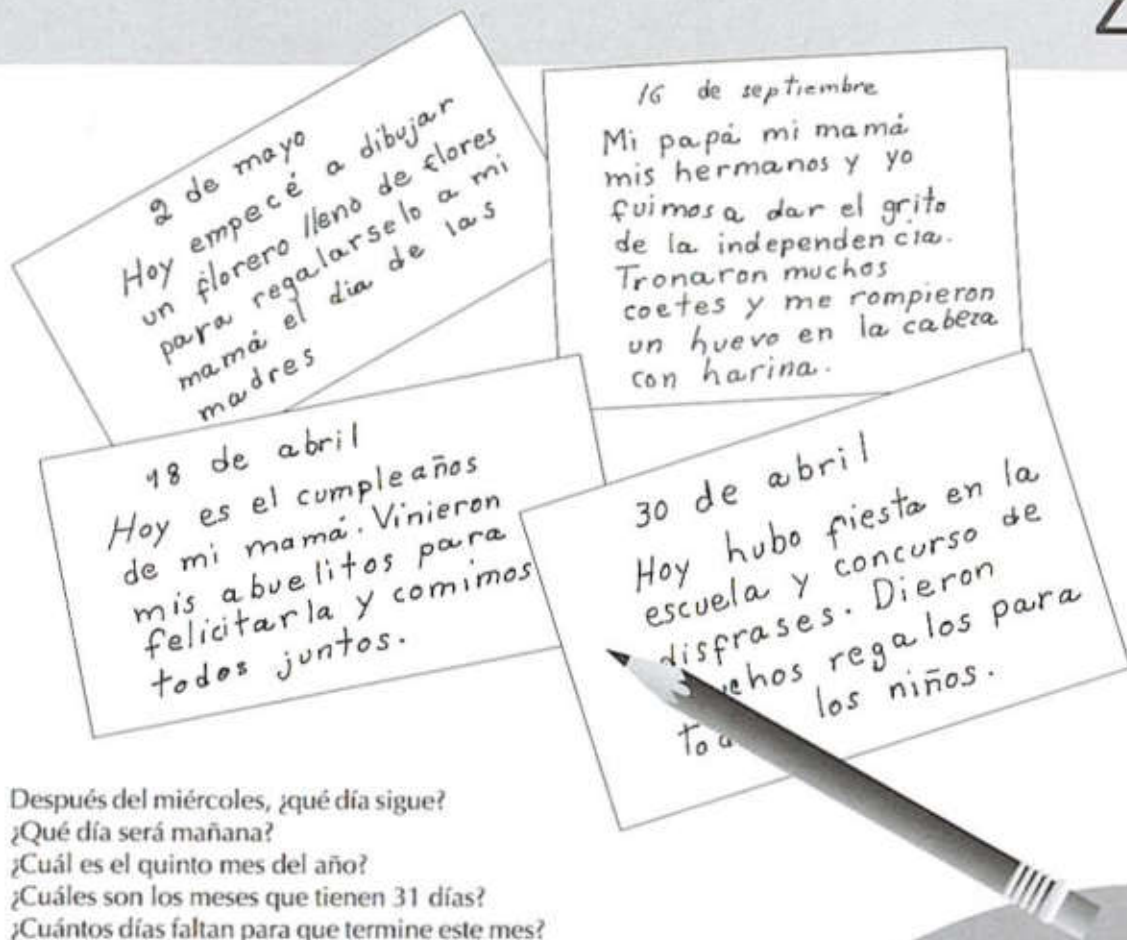 2 de mayo
Hoy empecé a dibujar
un florero lleno de flores
para regalarselo a mi
mamá el dia de las
madres
16 de septiembre
Mi papá mi mamá
mis hermanos y yo
fuimos a dar el grito
de la independencia.
Tronaron muchos
coetes y me rompieron
un huevo en la cabeza
con harina.
18 de abril
Hoy es el cumpleaños
de mi mamá. Vinieron
mis abuelitos para
felicitarla y comimos
todos juntos.
30 de abril
Hoy hubo fiesta en la
escuela y concurso de
disfrases. Dieron
regalos para
los niños.
Después del miércoles, ¿qué día sigue?
¿Qué día será mañana?
¿Cuál es el quinto mes del año?
¿Cuáles son los meses que tienen 31 días?
¿Cuántos días faltan para que termine este mes?